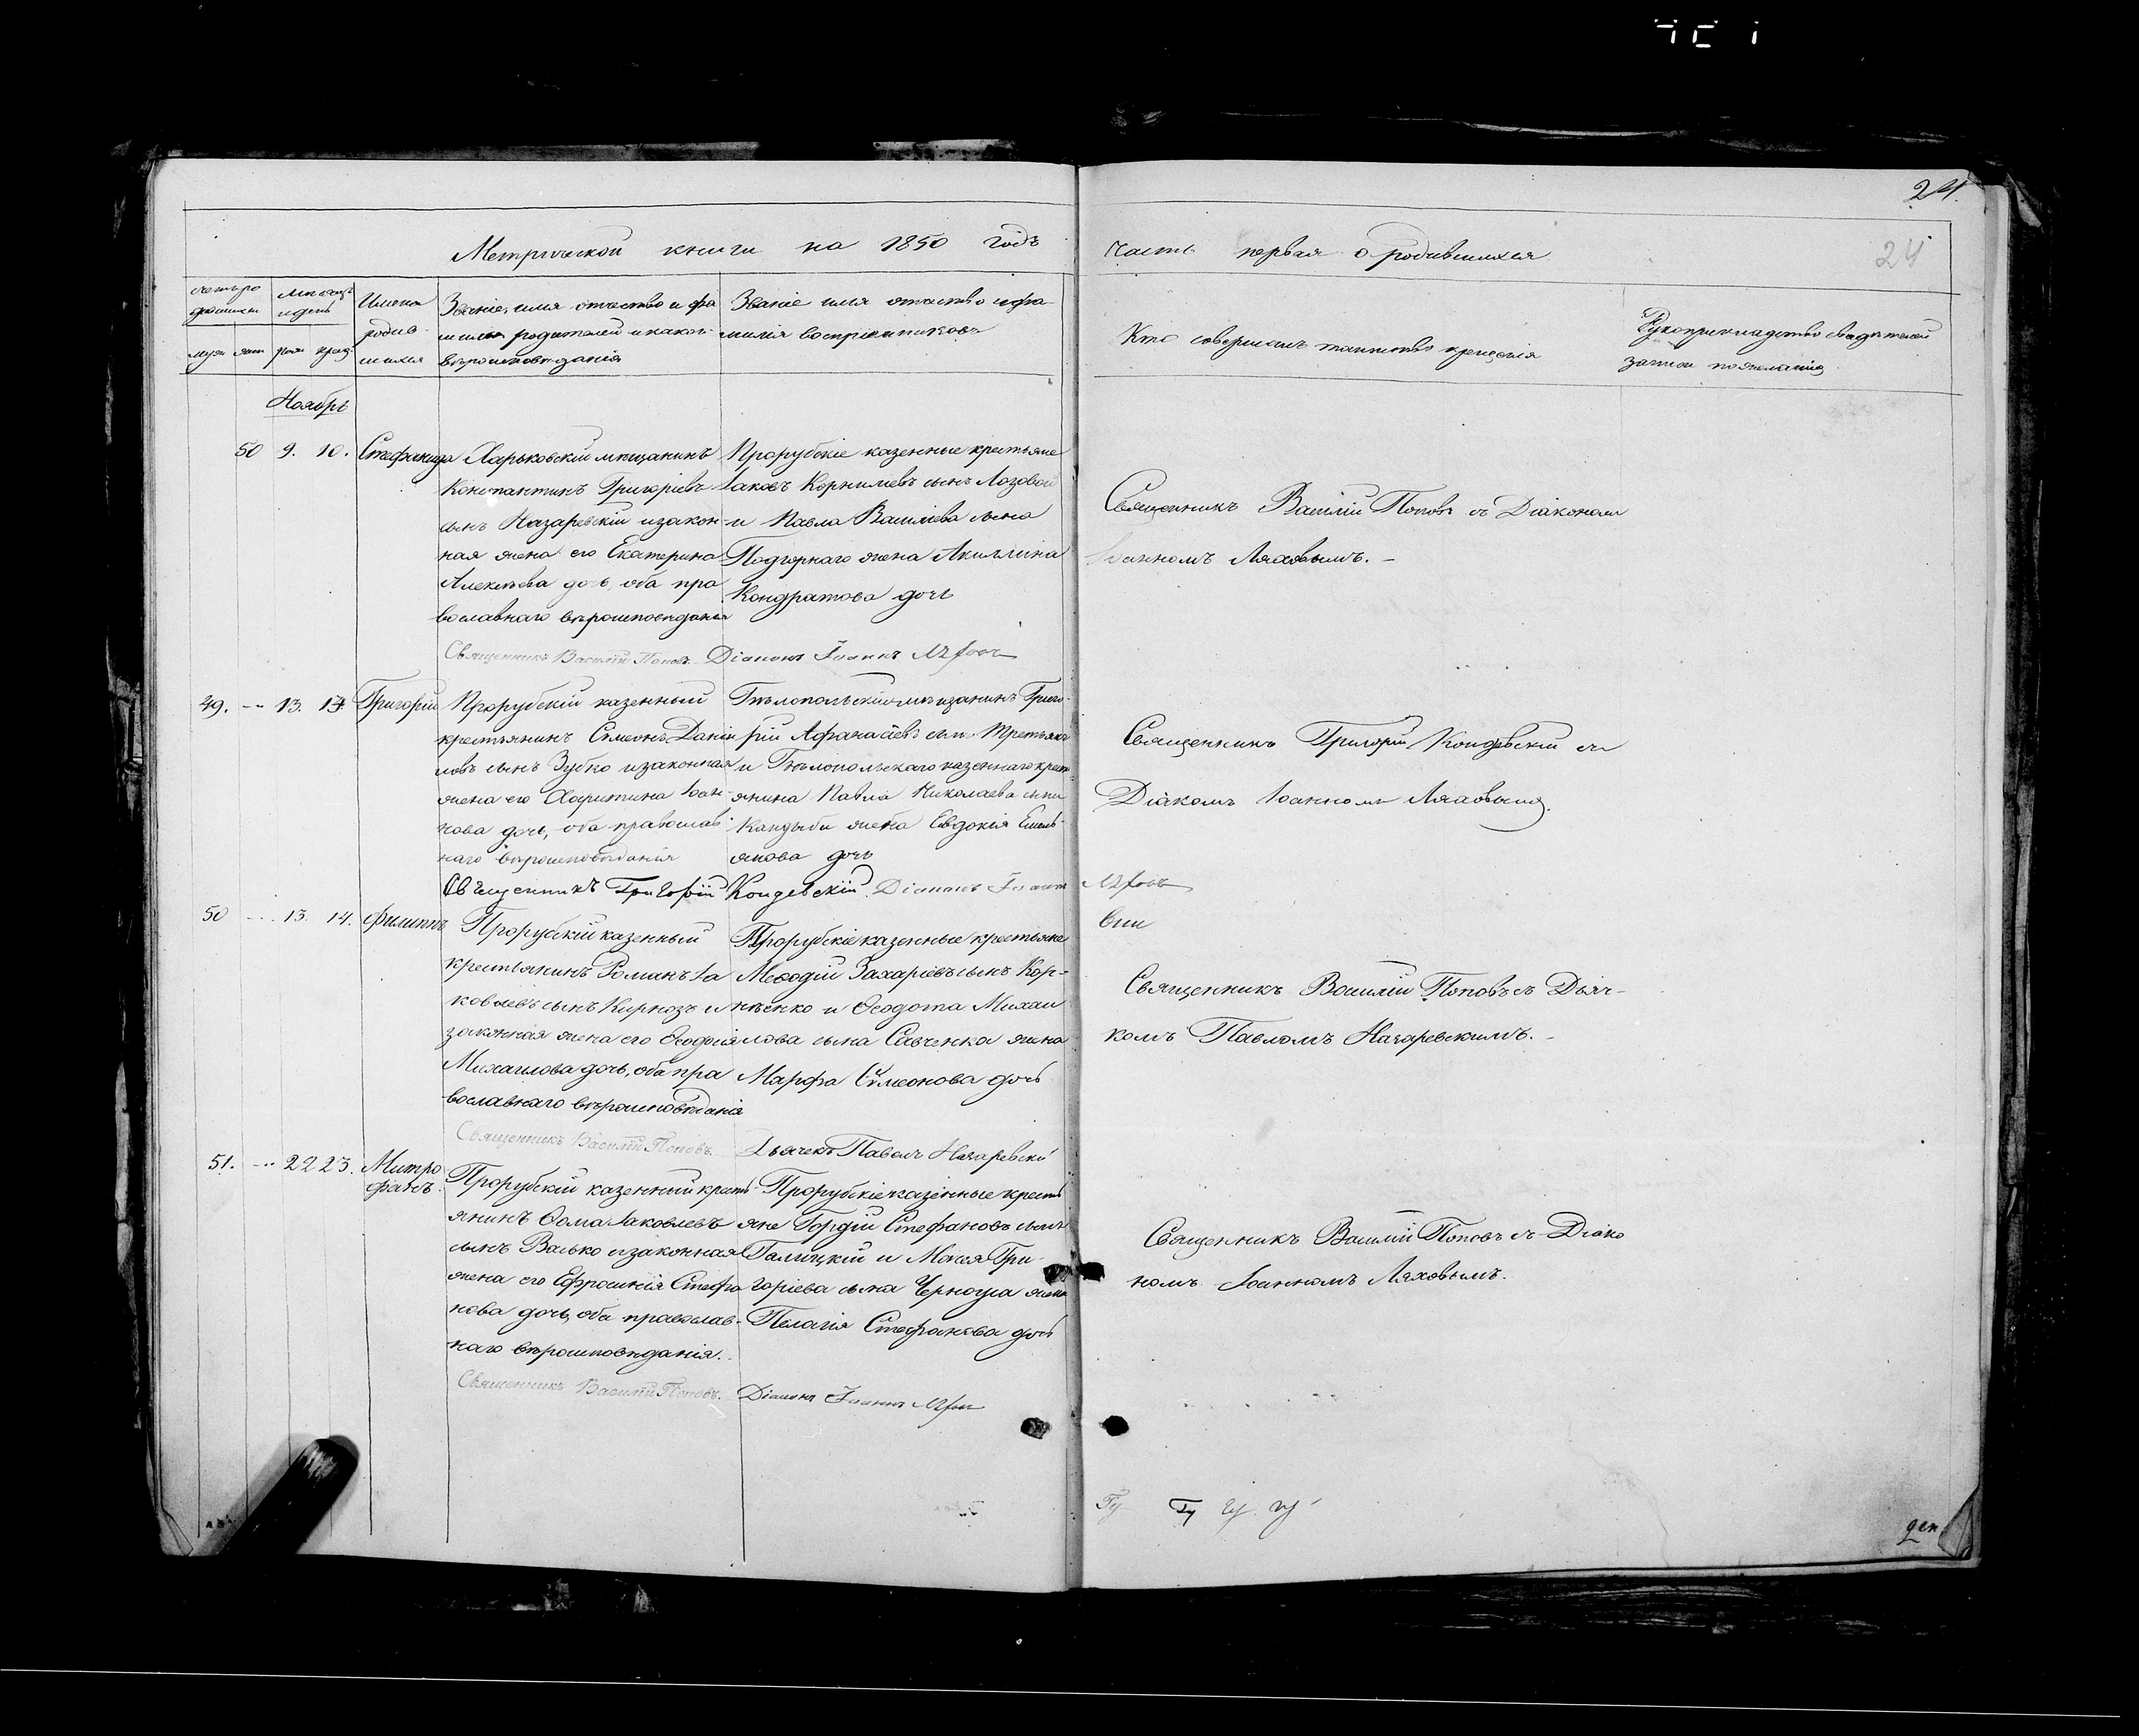 24.
24
Метрической книги на 1850 годъ
часть первая о родившихся
Имена
родив-
шихся
Званіе, имя отчество и фа
милія родителей и какого
вѣроисповѣданія
Званіе имя отчество и фа-
милія воспріемниковъ
Кто совершалъ таинство крещенія
Рукоприкладство свидѣтелей
записи по желанію
Ноябрь
50 9. 10. Стефанида
Харьковскій мѣщанинъ
Константинъ Григоріевъ
сынъ Назаревскій и закон-
ная жена его Екатерина
Алексѣева дочь, оба пра
вославнаго вѣроисповѣданія
Прорубскіе казенные крестьяне
Іаковъ Корнилевъ сынъ Лозовой
и Павла Василіева сына
Подгорнаго жена Акилина
Кондратова дочь
Священникъ Василій Поповъ съ Діакономъ
Іоанномъ Ляховымъ.
Священникъ Василій Поповъ. Діаконъ Іоаннъ Ляховъ
49. -- 13. 14 Григорій
Прорубскій казенный
крестьянинъ Симеонъ Даніи
ловъ сынъ Зубко и законная
жена его Харитина Іоан-
нова дочь, оба православ-
наго вѣроисповѣданія
Бѣлопольскій мѣщанинъ Григо-
рій Афанасіевъ сынъ Третьякъ
и Бѣлопольскаго казеннаго крест
янина Павла Николаева сына
Кандыбы жена Евдокія Емель-
янова дочь
Священникъ Григорій Кондевскій съ
Діакомъ Іоанномъ Ляховымъ.
Священникъ Григорій Кондевскій. Діаконъ Іоаннъ Ляховъ
50 --- 13. 14. Филиппъ
Прорубскій казенный
крестьянинъ Романъ Іа
ковлевъ сынъ Кирнозъ и
законная жена его Ѳеодосія
Михаилова дочь, оба пра
вославнаго вѣроисповѣданія
Прорубскіе казенные крестьяне
Меѳодій Захаріевъ сынъ Кор-
нѣенко и Ѳеодота Михаи
лова сына Савченка жена
Марфа Симеонова дочь
Священникъ Василій Поповъ съ Дьяч-
комъ Павломъ Назаревскимъ.
Священникъ Василій Поповъ. Дьячекъ Павелъ Назаревскій
51. --- 22 23. Митро
фанъ.
Прорубскій казенный крест
янинъ Ѳома Іаковлевъ
сынъ Васько и законная
жена его Ефросинія Стефа
нова дочь, оба православ-
наго вѣроисповѣданія.
Прорубскіе казенные крестьь
яне Гордій Стефановъ сынъ
Галицкій и Моисея Гри-
горіева сына Черноуса жена
Пелагія Стефанова дочь
Священникъ Василій Поповъ съ Діако
номъ Іоанномъ Ляховымъ.
Священникъ Василій Поповъ. Діаконъ Іоаннъ Ляховъ